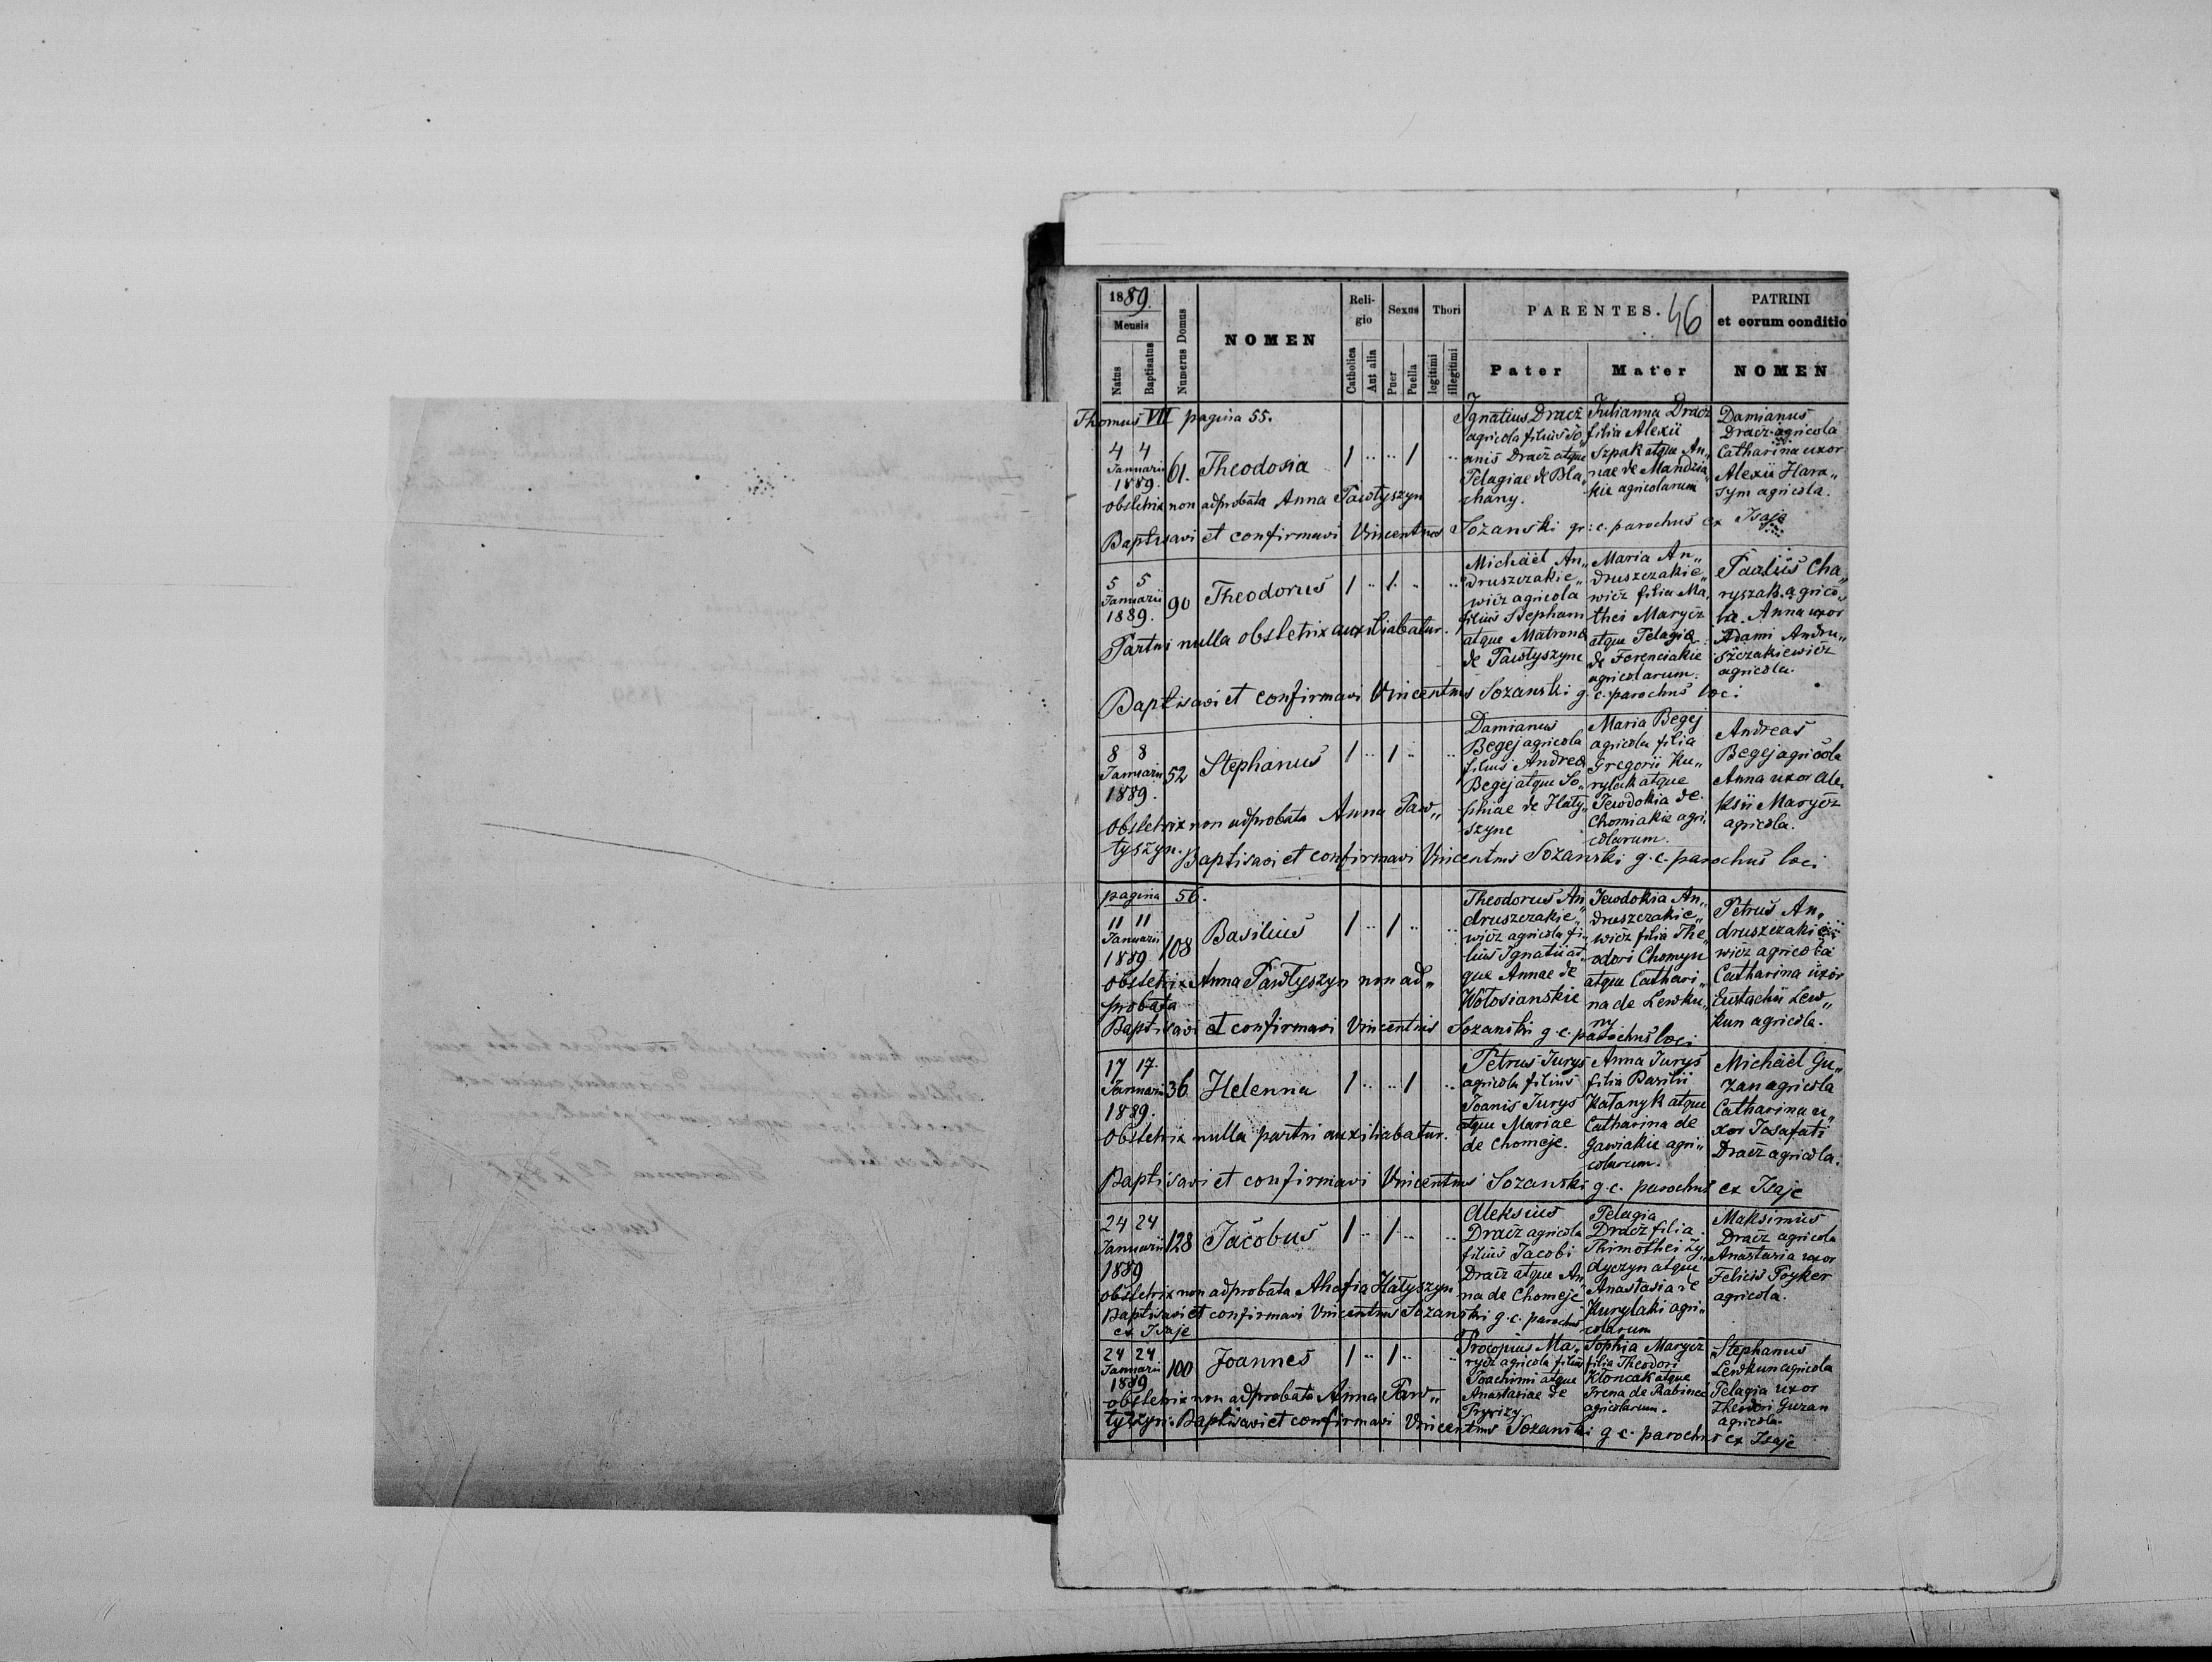 1889.
Mensis
Natus
Baptisatus
Numerus Domus
NOMEN
Religio
Catholica
Aut alia
Sexus
Puer
Puella
Thori
legitimi
illegitimi
PARENTES. 46
Pater
Mater
PATRINI
et eorum conditio
NOMEN
Thomus VII pagina 55.
4 4
Januarii
1889.
61.
Theodosia
1 .. .. 1 ..
Ignatius Dracz
agricola filius Jo„
anis Dracz atque
Pelagiae de Bla„
chany.
Julianna Dracz
filia Alexii
Szpak atque An„
nae de Mandzia„
kie agricolarum
Damianus
Dracz agricola
Catharina uxor
Alexii Hara„
sym agricola.
obstetrix non adprobata Anna Pawłyszyn
Baptisavi et confirmavi Vincentius Sozanski gr: c. parochus ex Isaje
5 5
Januarii
1889.
90
Theodorus
1 .. 1 .. ..
Michäel An„
druszczakie„
wicz agricola
filius Stephani
atque Matrona
de Pawłyszyne
Maria An„
druszczakie„
wicz filia Ma„
thei Marycz
atque Pelagia
de Ferenciakie
agricolarum.
Paulus Cha„
ryszak agrico„
la. Anna uxor
Adami Andru„
szczakiewicz
agricola.
Partui nulla obstetrix auxiliabatur.
Baptisavi et confirmavi Vincentius Sozanski g. c. parochus loci
8 8
Januarii
1889.
52
Stephanus
1 .. 1 .. ..
Damianus
Begej agricola
filius Andrea
Begej atque So„
phiae de Hłaty„
szyne
Maria Begej
agricola filia
Gregorii Ku„
rylak atque
Jewdokia de
Chomiakie agri„
colarum.
Andreas
Begej agricola
Anna uxor Ale„
ksii Marycz
agricola.
Obstetrix non adprobata Anna Paw„
łyszyn. Baptisavi et confirmavi Vincentius Sozanski g. c. parochus loci
pagina 56.
11 11
Januarii
1889
108
Basilius
1 .. 1 .. ..
Theodorus An„
druszczakie„
wicz agricola fi„
lius Ignatii at„
que Annae de
Wołosianskie
Jewdokia An„
druszczakie„
wicz filia The„
odori Chomyn
atque Cathari„
na de Lewku„
ny
Petrus An„
druszczakie„
wicz agricola
Catharina uxor
Eustachii Lew„
kun agricola.
obstetrix Anna Pawłyszyn non ad„
probata
Baptisavi et confirmavi Vincentius Sozanski g. c. parochus loci
17 17
Januarii
1889.
36
Helenna
1 .. .. 1 ..
Petrus Jurys
agricola filius
Joanis Jurys
atque Mariae
de Chomeje.
Anna Jurys
filia Basilii
Katanyk atque
Catharina de
Gawiakie agri„
colarum.
Michäel Gu„
zan agricola
Catharina u„
xor Josafati
Dracz agricola.
Obstetrix nulla partui auxiliabatur.
Baptisavi et confirmavi Vincentius Sozanski g. c. parochus ex Isaje
24 24
Januarii
1889
128
Jacobus
1 .. 1 .. ..
Aleksius
Dracz agricola
filius Jacobi
Dracz atque An„
na de Chomeje
Pelagia
Dracz filia
Thimothei Ly„
dyczyn atque
Anastasia de
Kurylaki agri„
colarum
Maksimus
Dracz agricola
Anastasia uxor
Felicis Poyker
agricola.
obstetrix non adprobata Ahafia Hłatyszyn
Baptisavi et confirmavi Vincentius Sozanski g. c. parochus
ex Isaje
24 24
Januarii
1889
100
Joannes
1 .. 1 .. ..
Procopius Ma„
rycz agricola filius
Joachimi atque
Anastasiae de
Pryrizy
Sophia Marycz
filia Theodori
Kłoncak atque
Irena de Rabince
agricolarum.
Stephanus
Lewkun agricola
Pelagia uxor
Theodori Guzan
agricola.
obstetrix non adprobata Anna Paw„
łyszyn. Baptisavi et confirmavi Vincentius Sozanski g. c. parochus ex Isaje